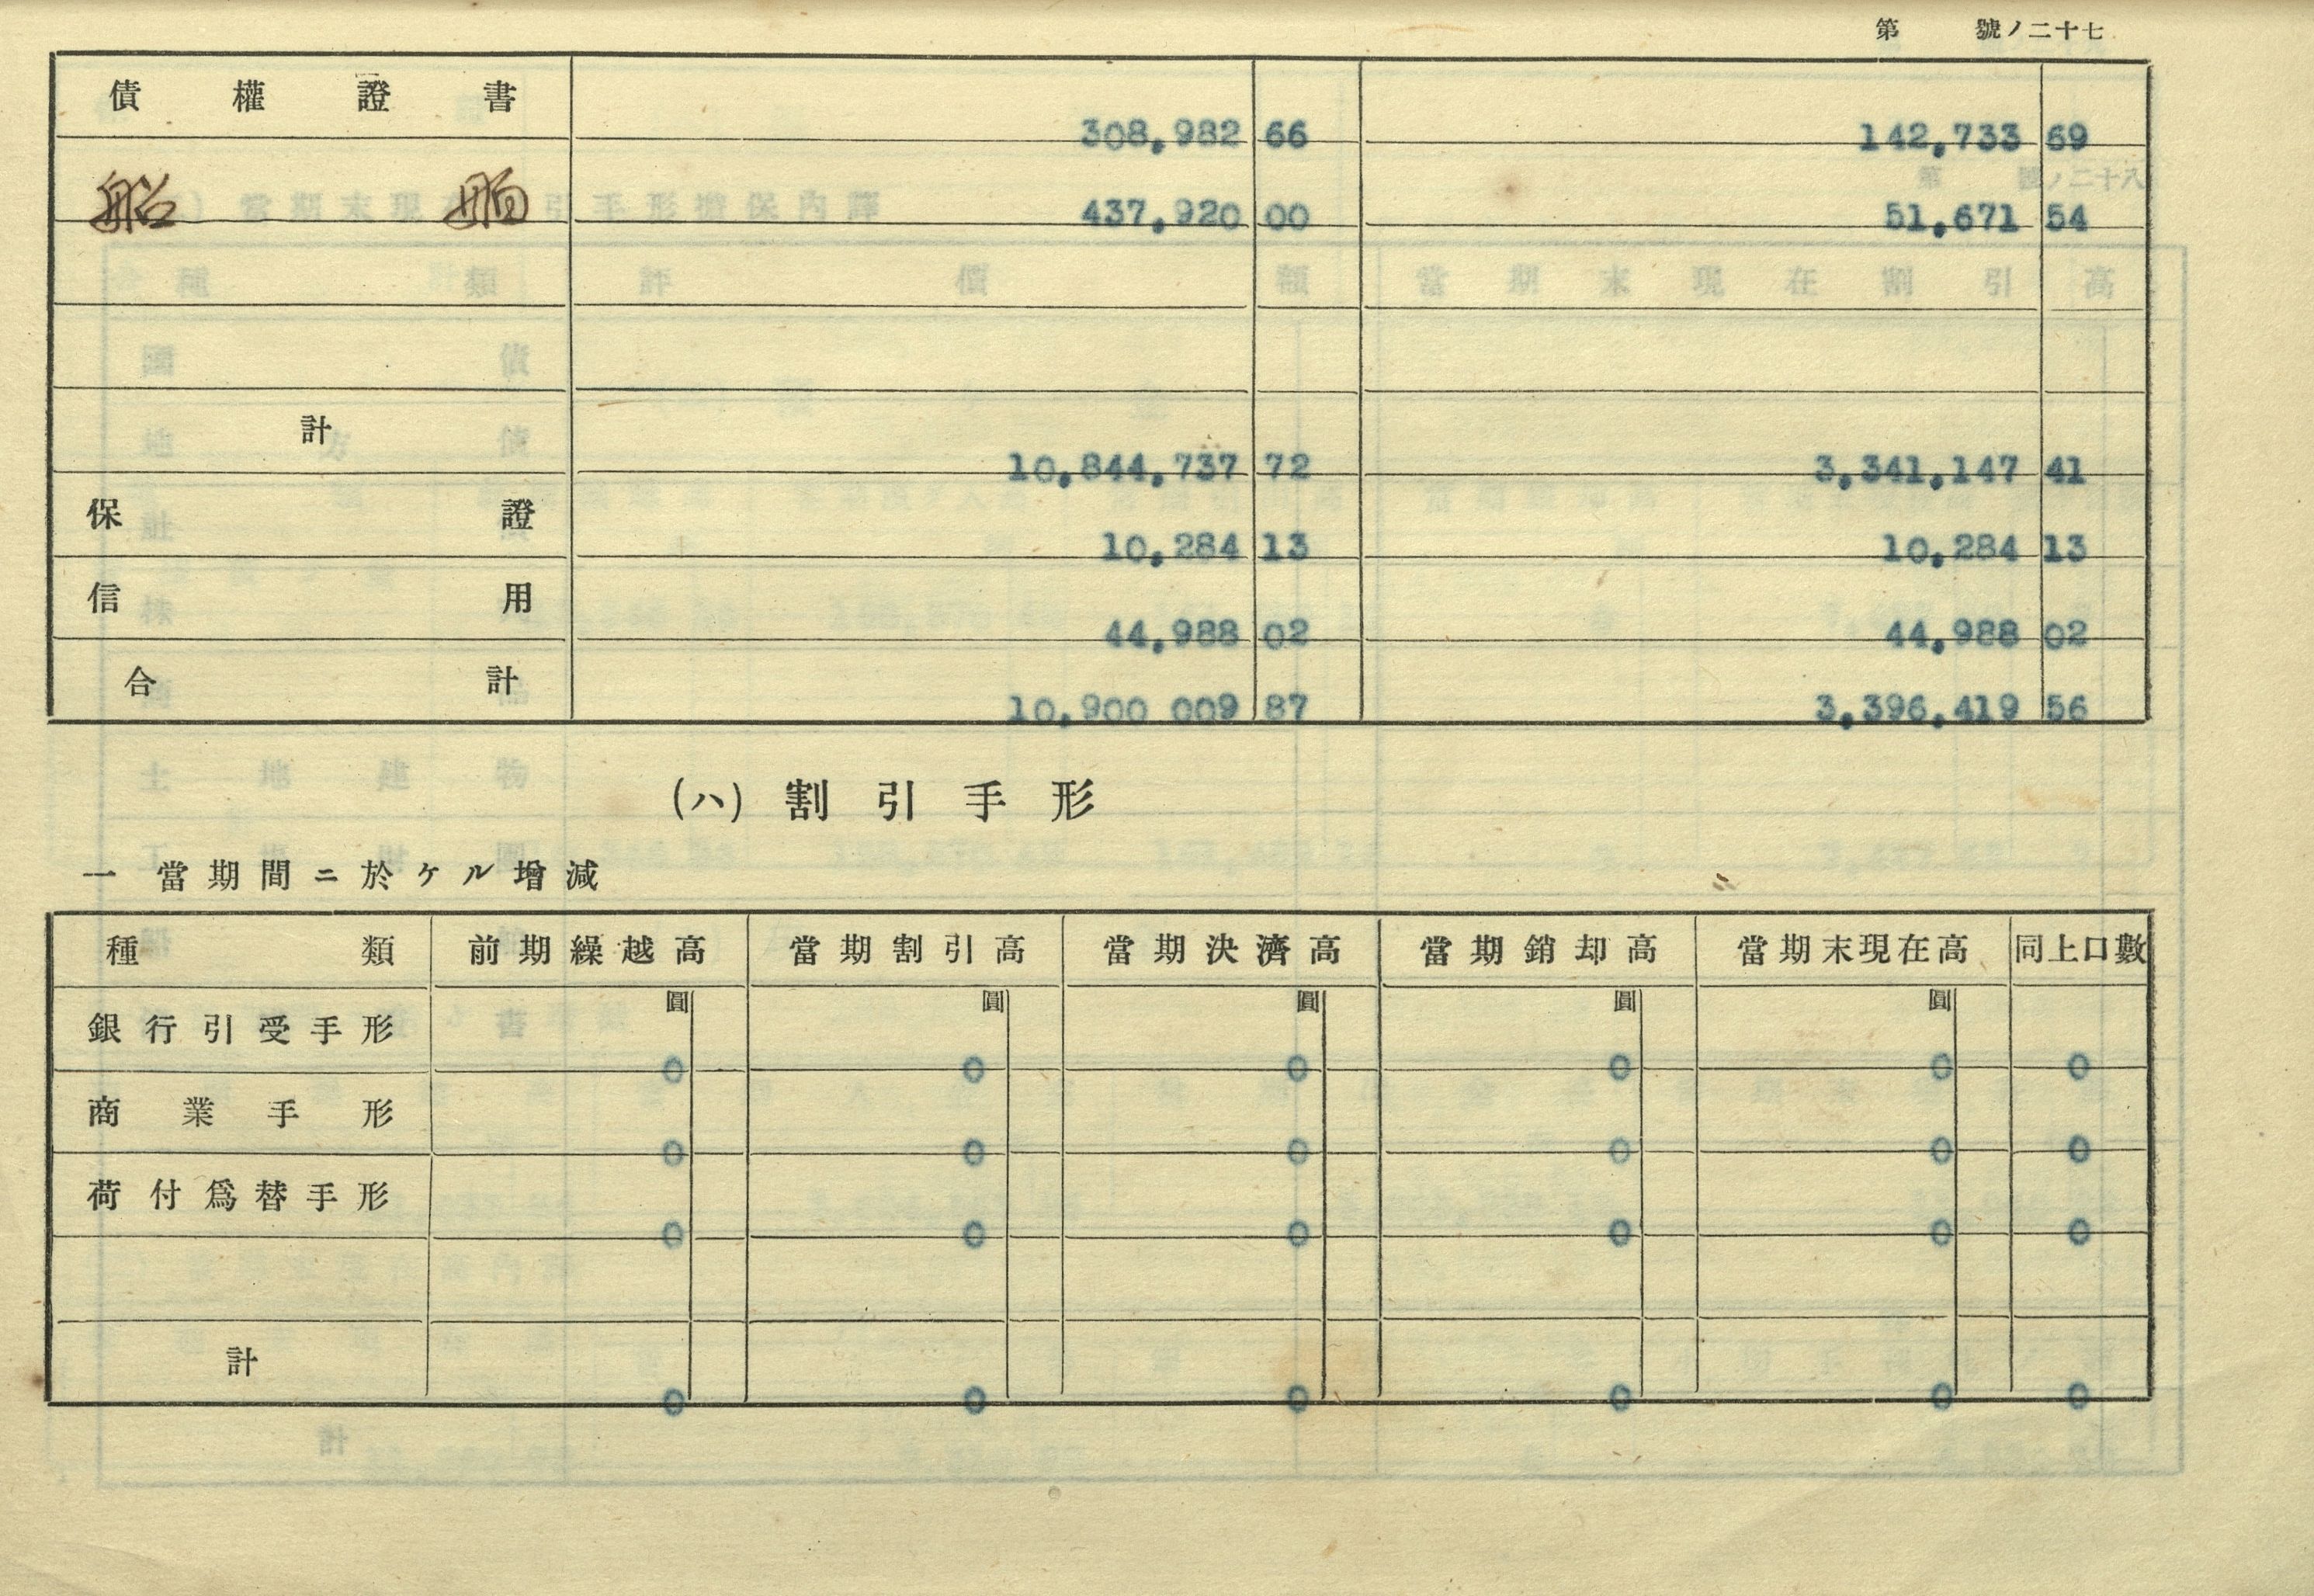 第 號ノ二十七
債權證書 308,982 66 142,733 69
船舶 437,920 00 51,671 54
計 10,844,737 72 3,341,147 41
保證 10,284 13 10,284 13
信用 44,988 02 44,988 02
合計 10,900 009 87 3,396,419 56
(ハ) 割引手形
一 當期間ニ於ケル增減
種類 前期繰越高 當期割引高 當期決濟高 當期銷却高 當期末現在高 同上口數
圓 圓 圓 圓 圓
銀行引受手形 0 0 0 0 0 0
商業手形 0 0 0 0 0 0
荷付爲替手形 0 0 0 0 0 0
計 0 0 0 0 0 0